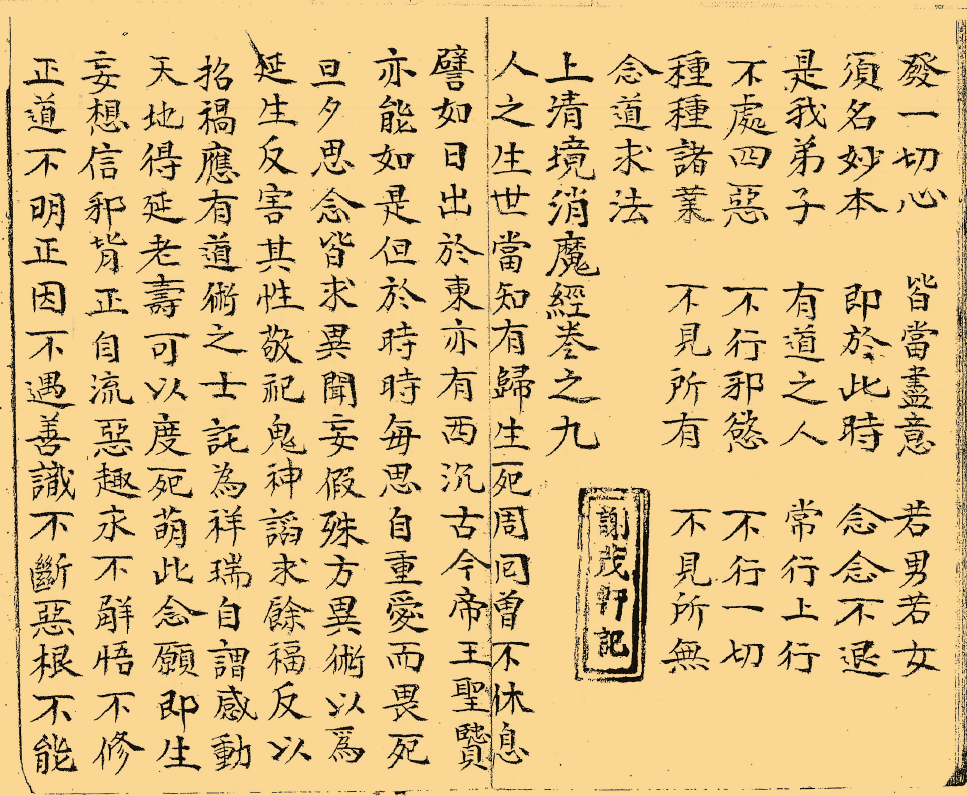 發一切心 皆當盡意 若男若女
須名妙本 即於此時 念念不退
是我弟子 有道之人 常行上行
不處四惡 不行邪慾 不行一切
種種諸業 不見所有 不見所無
念道求法
上清境消魔經卷之九
謝茂軒記
人之生世當知有歸生死周囘曾不休息
譬如日出於東亦有西沉古今帝王聖賢
亦能如是但於時時每思自重愛而畏死
旦夕思念皆求異聞妄假殊方異術以爲
延生反害其性敬祀鬼神謟求餘福反以
招禍應有道術之士託為祥瑞自謂感動
天地得延老壽可以度死萌此念願即生
妄想信邪背正自流惡趣永不觧悟不修
正道不明正因不遇善識不斷惡根不能